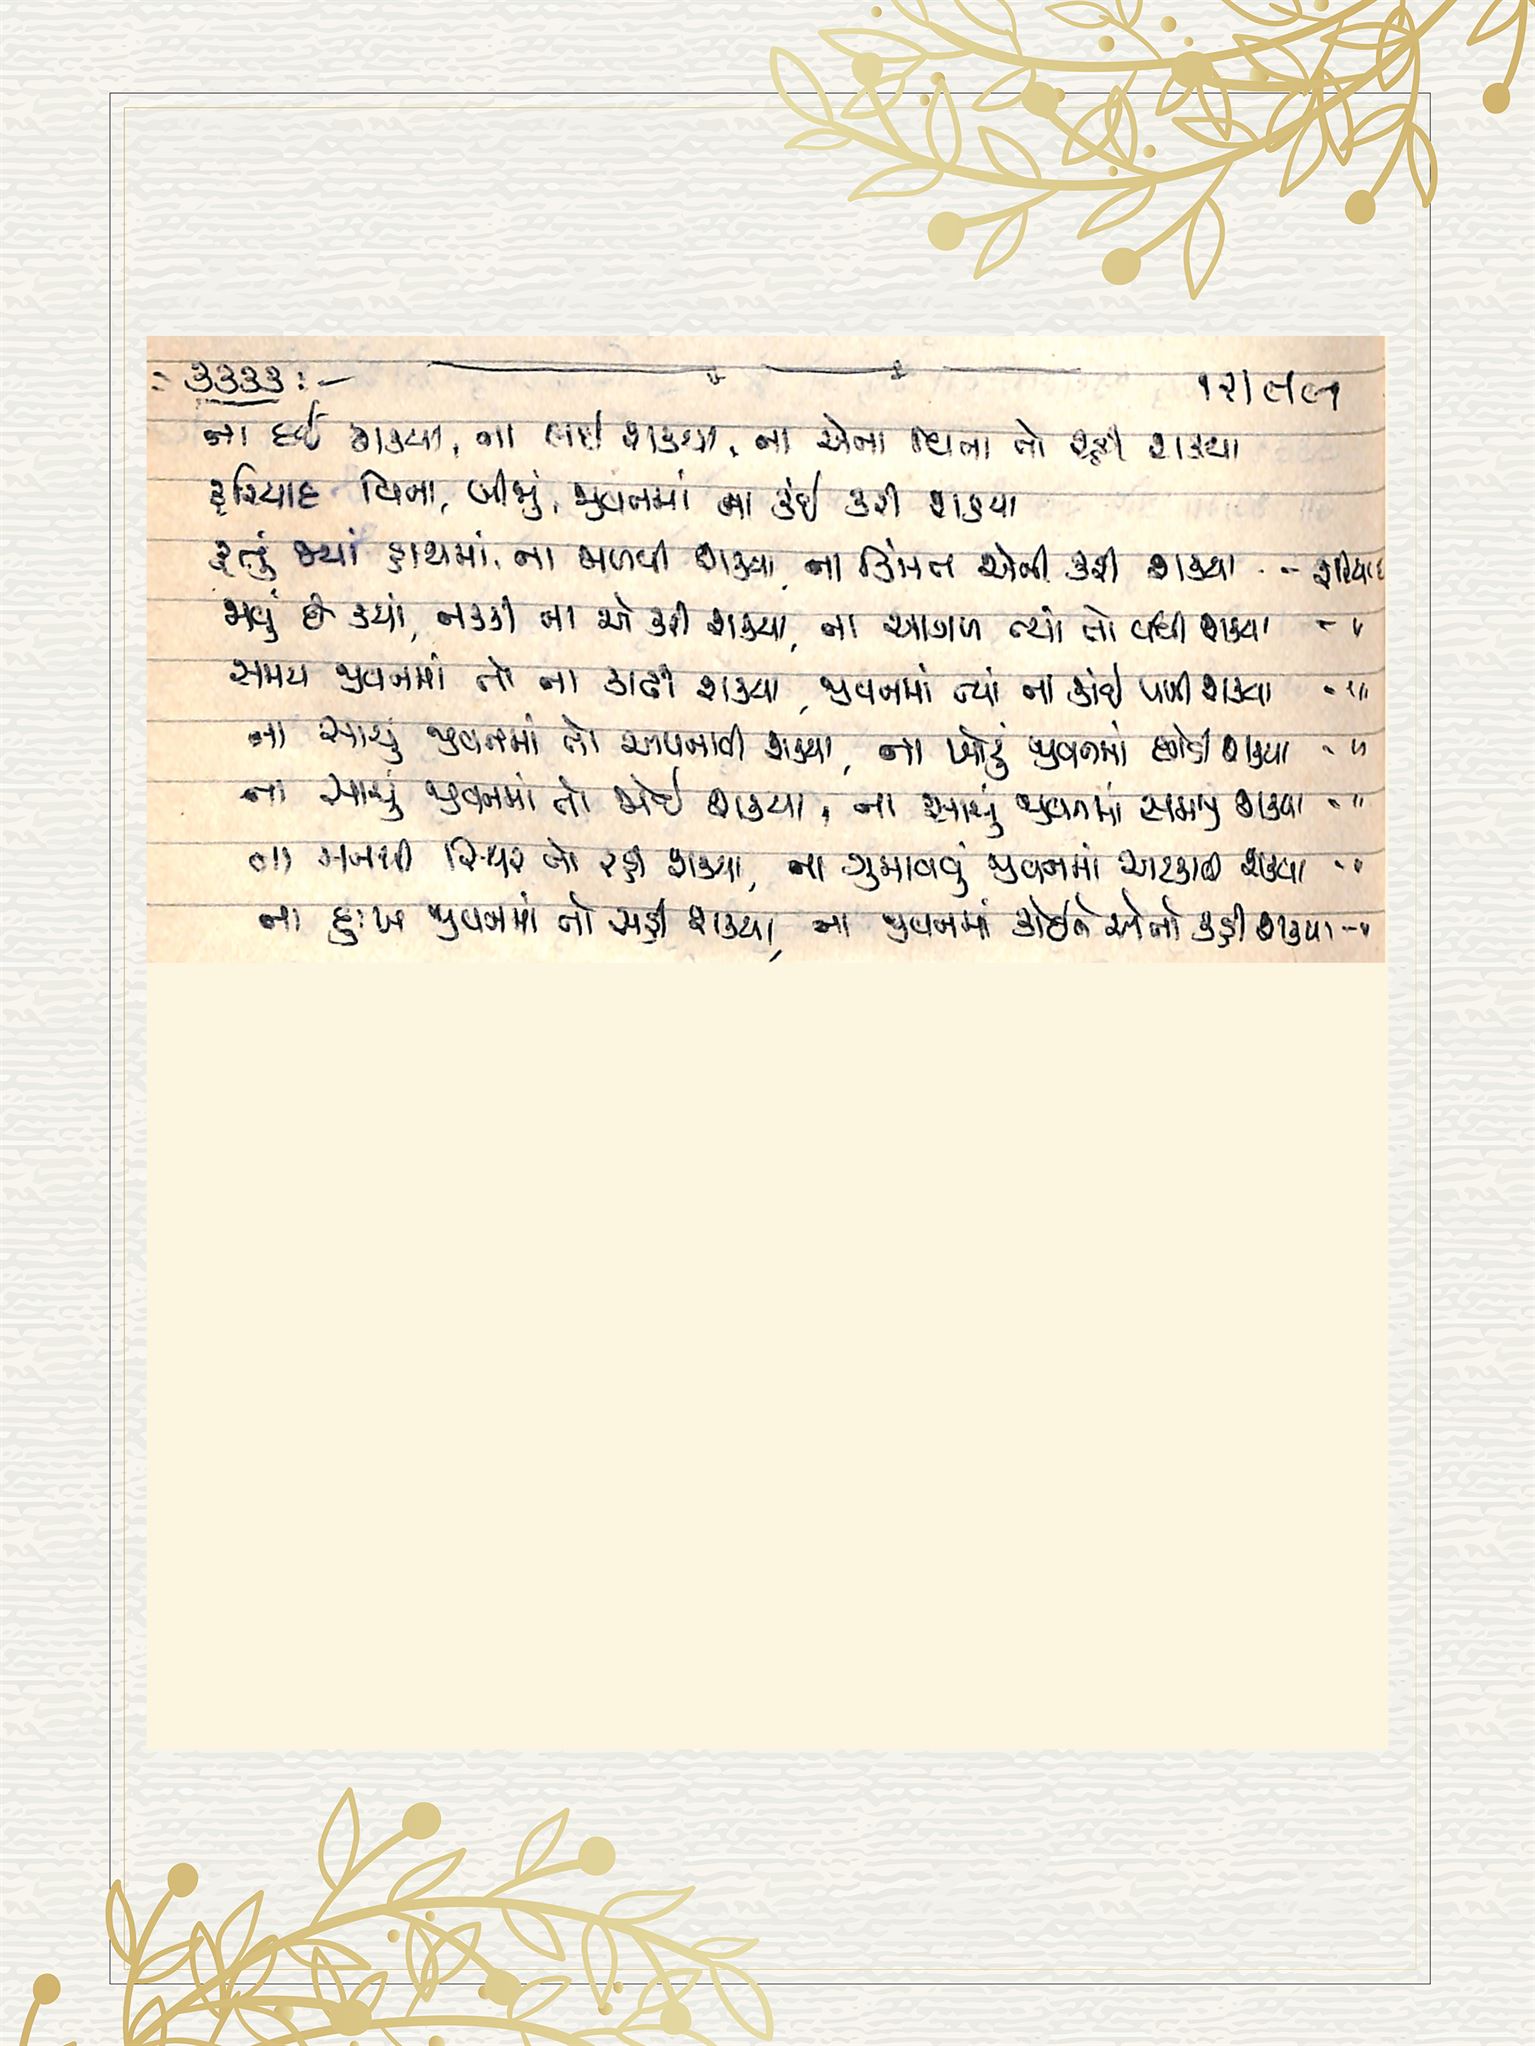 ૩૩૩૩ :- ૧૨।૯।૯૧
ના દઈ શક્યા, ના લઈ શક્યા, ના એના વિના તો રહી શક્યા
ફરિયાદ વિના, બીજું, જીવનમાં ના કંઈ કરી શક્યા
હતું જ્યાં હાથમાં, ના મેળવી શક્યા, ના કિંમત એની કરી શક્યા -- ફરિયાદ
જાવું છે ક્યાં, નક્કી ના એ કરી શક્યા, ના આગળ ત્યાં તો વધી શક્યા - "
સમય જીવનમાં તો ના કાઢી શક્યા, જીવનમાં ત્યાં ના કાંઈ પામી શક્યા - "
ના સાચું જીવનમાં તો અપનાવી શક્યા, ના ખોટું જીવનમાં છોડી શક્યા - "
ના સાચું જીવનમાં તો જોઈ શક્યા, ના સાચું જીવનમાં સમજી શક્યા - "
ના મનથી સ્થિર તો રહી શક્યા, ના ગુમાવવું જીવનમાં અટકાવી શક્યા - "
ના દુઃખ જીવનમાં તો સહી શક્યા, ના જીવનમાં કોઈને એનો કહી શક્યા - "